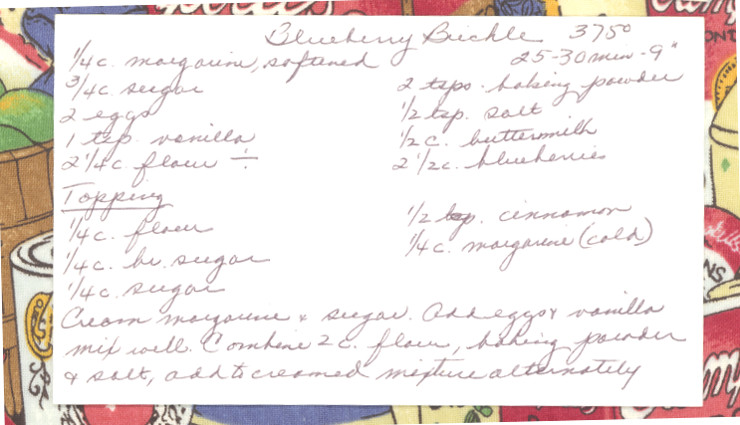 Blueberry Buckle 375°
1/4 c. margarine, softened 25-30 min - 9"
3/4 c. sugar 2 tsps. baking powder
2 eggs 1/2 tsp. salt
1 tsp. vanilla 1/2 c. buttermilk
2 1/4 c. flour ÷ 2 1/2 c. blueberries
Topping
1/4 c. flour 1/2 tsp. cinnamon
1/4 c. br. sugar 1/4 c. margarine (cold)
1/4 c. sugar
Cream margarine & sugar. Add eggs & vanilla
mix well. Combine 2 c. flour, baking powder
& salt, add to creamed mixture alternately